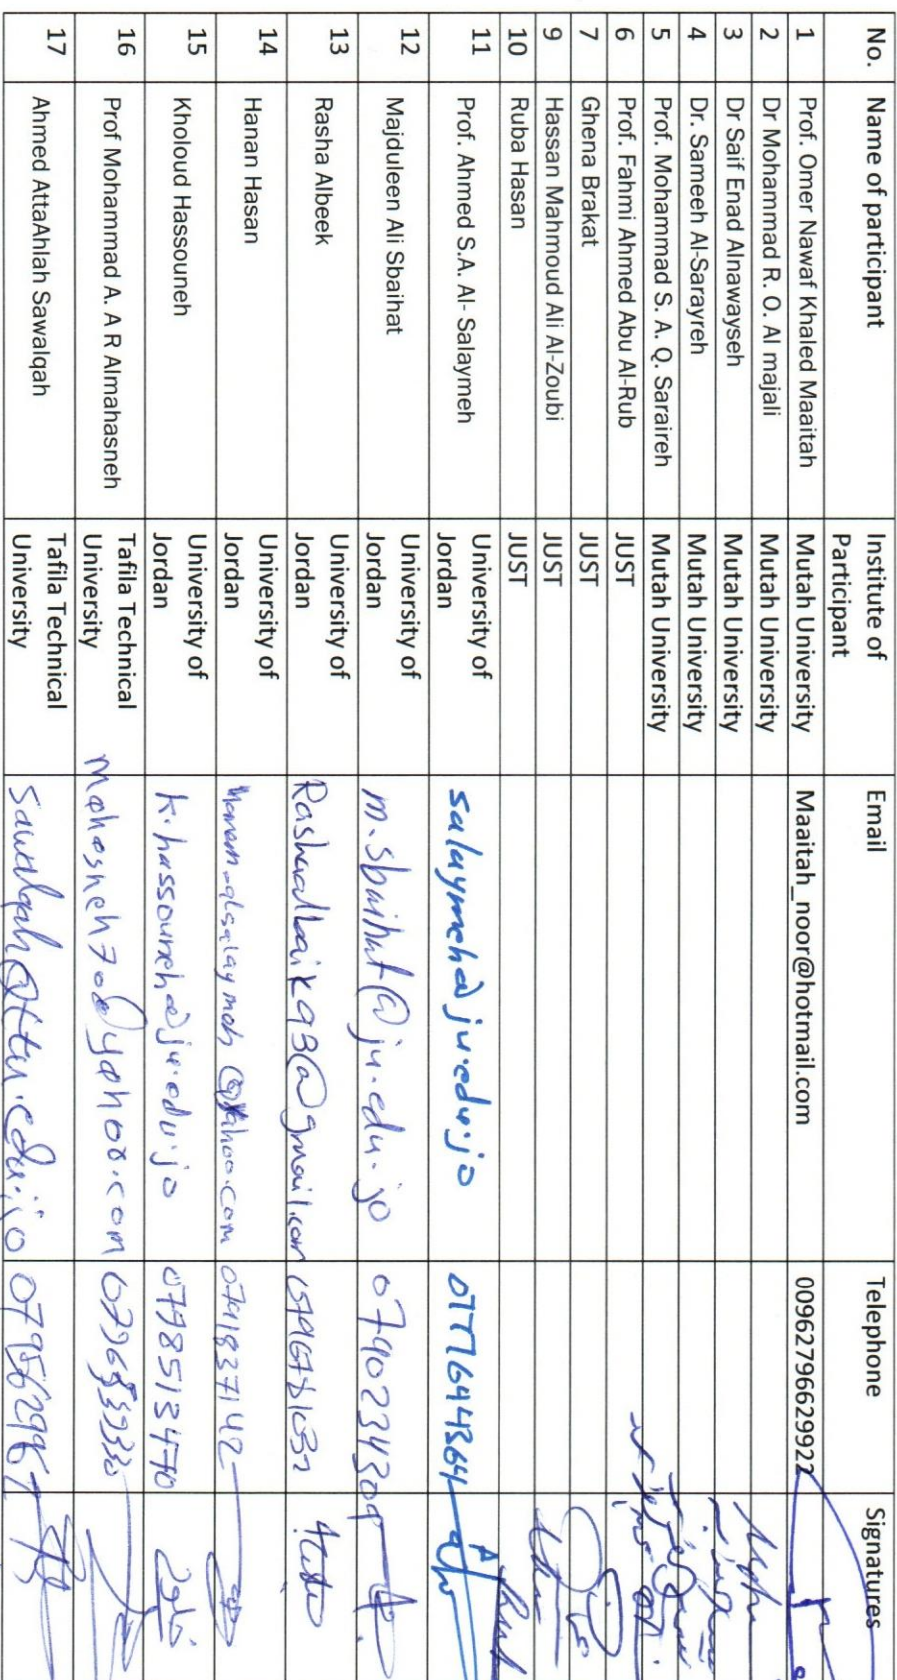 No. Name of participant Institute of Participant Email Telephone Signatures
1 Prof. Omer Nawaf Khaled Maaitah Mutah University Maaitah_noor@hotmail.com 00962796629922
2 Dr Mohammad R. O. Al majali Mutah University
3 Dr Saif Enad Alnawayseh Mutah University
4 Dr. Sameeh Al-Sarayreh Mutah University
5 Prof. Mohammad S. A. Q. Saraireh Mutah University
6 Prof. Fahmi Ahmed Abu Al-Rub JUST
7 Ghena Brakat JUST
9 Hassan Mahmoud Ali Al-Zoubi JUST
10 Ruba Hasan JUST
11 Prof. Ahmed S.A. Al- Salaymeh University of Jordan salaymeh@ju.edu.jo 0777644364
12 Majduleen Ali Sbaihat University of Jordan m.sbaihat@ju.edu.jo 0790234309
13 Rasha Albeek University of Jordan Rashaalbaik93@gmail.com
14 Hanan Hasan University of Jordan hanan_alsalaymeh@yahoo.com 0791837142
15 Kholoud Hassouneh University of Jordan k.hassouneh@ju.edu.jo 0778513470
16 Prof Mohammad A. A R Almahasneh Tafila Technical University mahasneh70@yahoo.com
17 Ahmed AttaAhlah Sawalqah Tafila Technical University sawalqah@ttu.edu.jo 0795629967